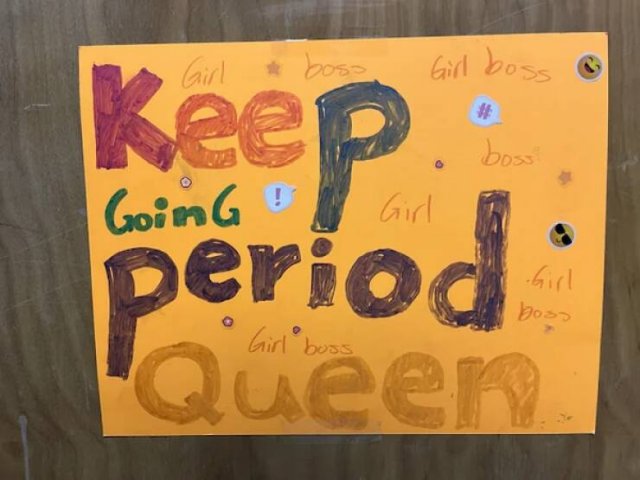 Girl boss Girl boss
Keep
#
boss
GoinG ! Girl
period
Girl
boss
Girl boss
Queen